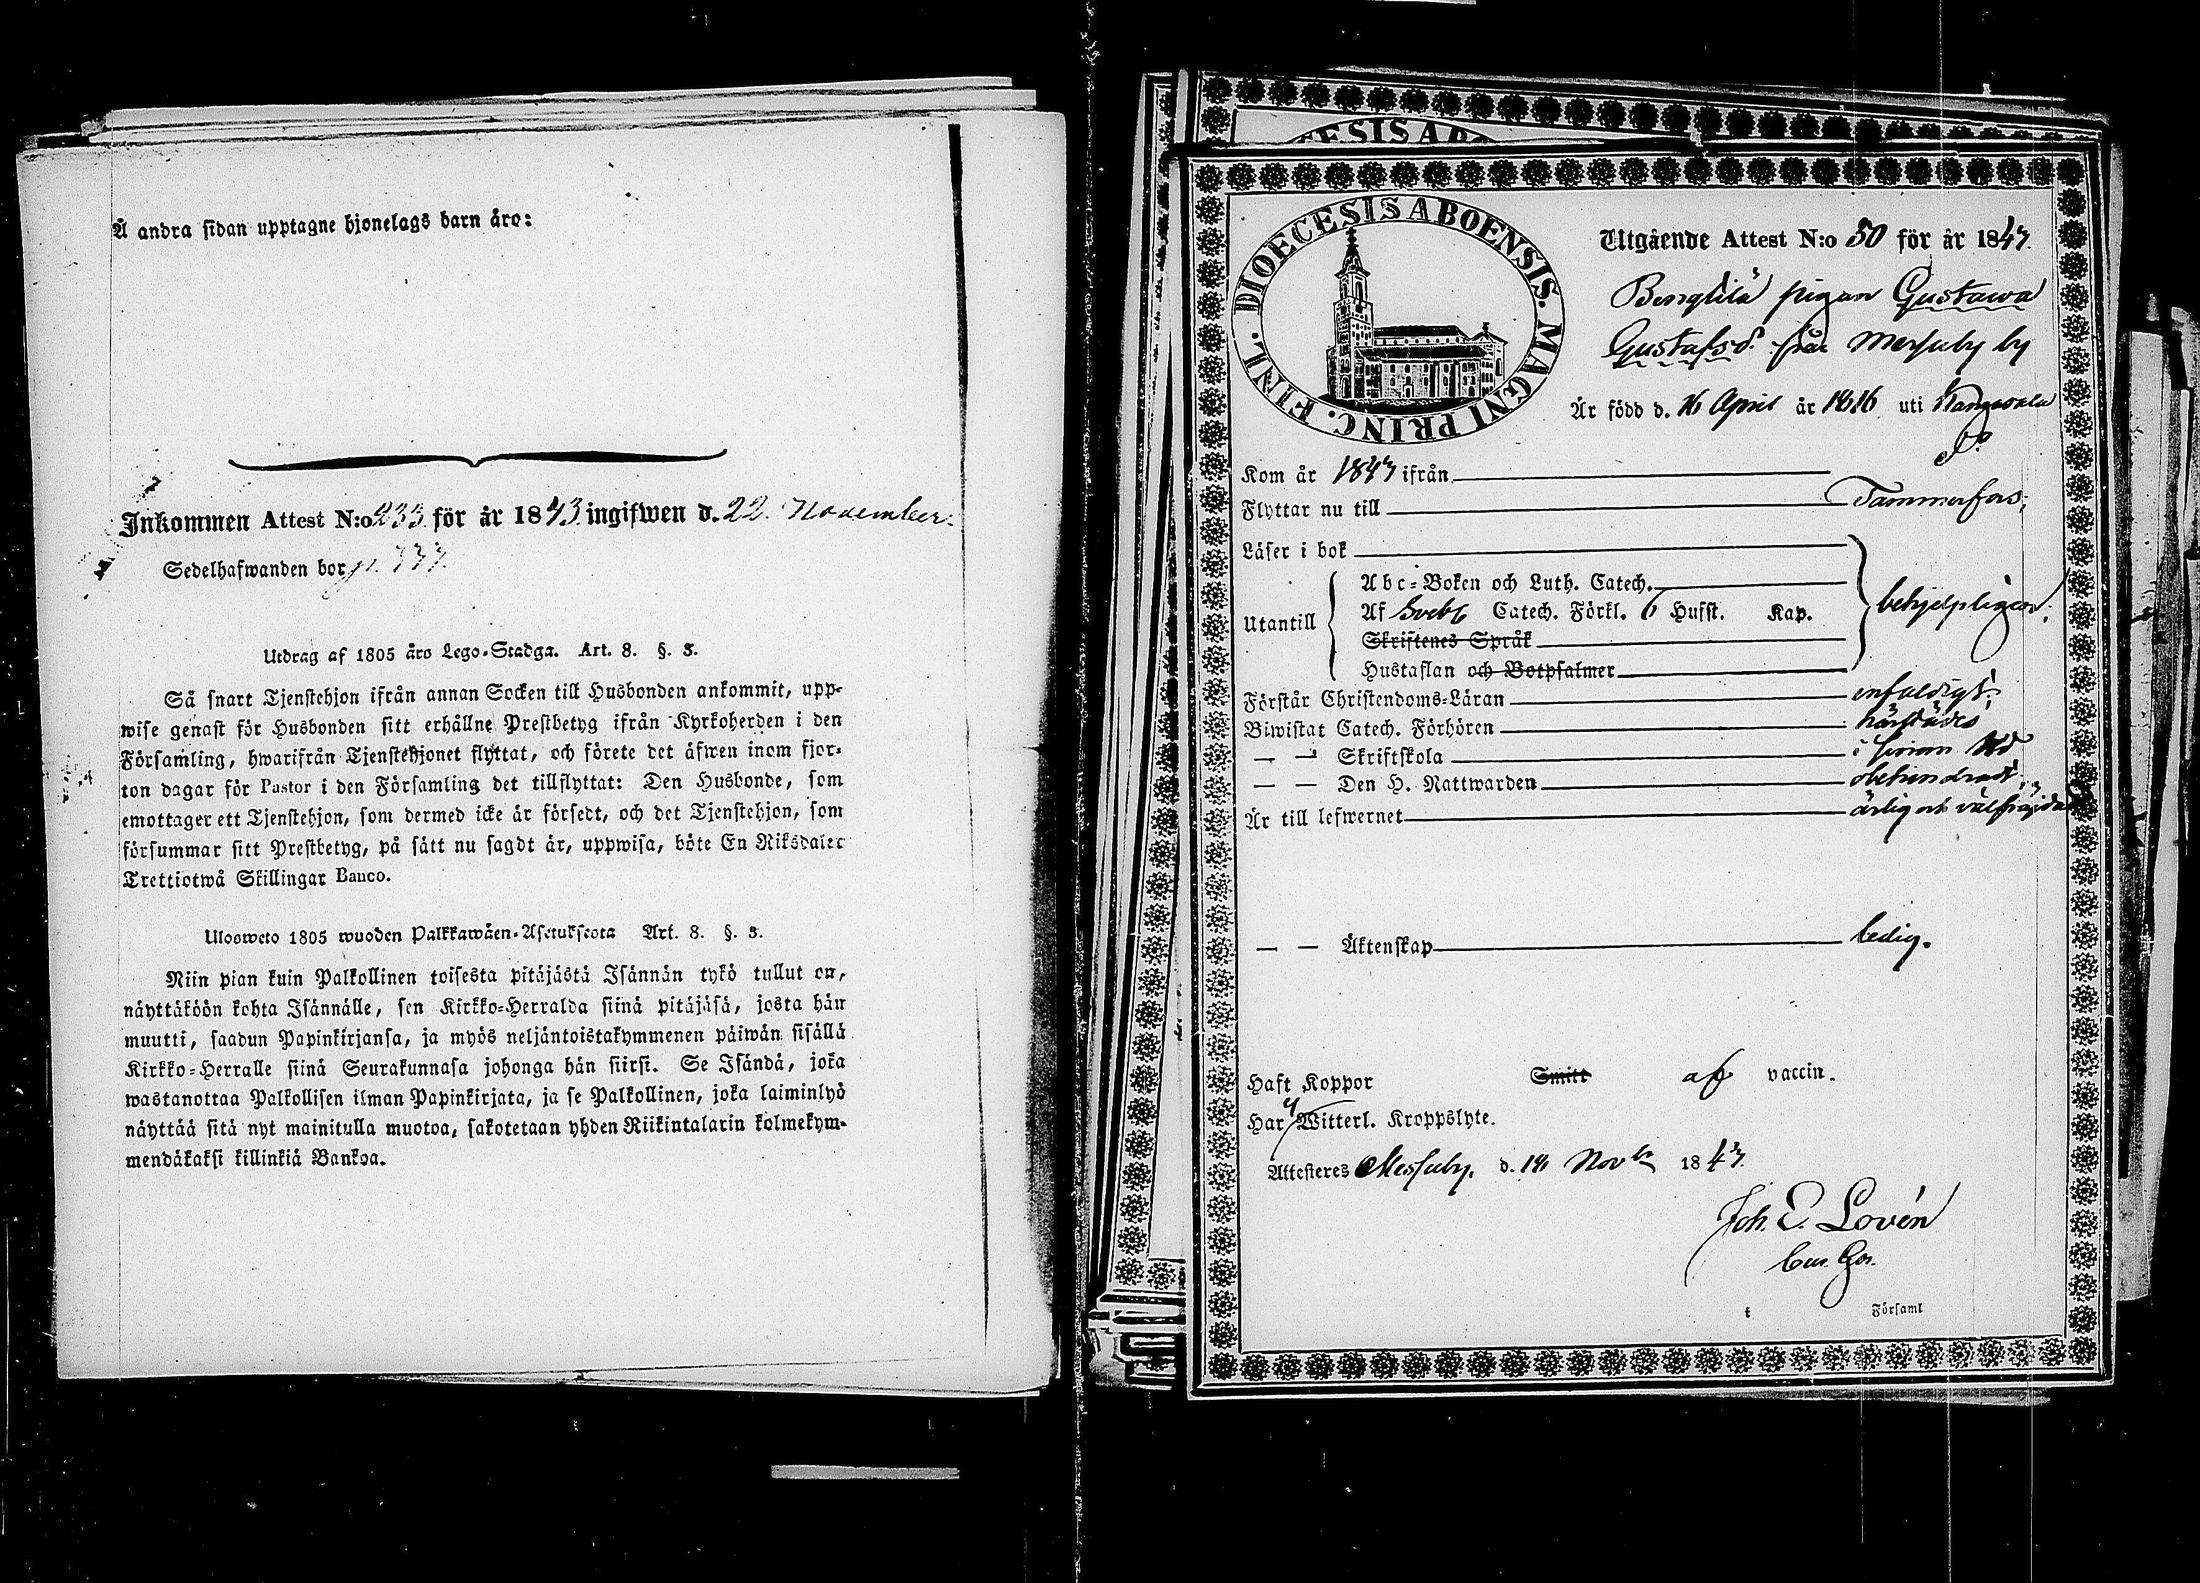 Å andra sidan upptagne hjonelags barn äro:
Inkommen Attest N:o 233 för år 1843 ingifwen d. 22. November.
Sedelhafwanden bor p. 737.
Utdrag af 1805 års Lego-Stadga. Art. 8. §. 3.
Så snart Tjenstehjon ifrån annan Socken till Husbonden ankommit, upp-
wise genast för Husbonden sitt erhållne Prestbetyg ifrån Kyrkoherden i den
Församling, hwarifrån Tjenstehjonet flyttat, och förete det äfwen inom fjor-
ton dagar för Pastor i den Församling det tillflyttat: Den Husbonde, som
emottager ett Tjenstehjon, som dermed icke är försedt, och det Tjenstehjon, som
försummar sitt Prestbetyg, på sätt nu sagdt är, uppwisa, böte En Riksdaler
Trettiotwå Skillingar Banco.
Ulosweto 1805 wuoden Palkkawäen-Asetuksesta Art. 8. §. 3.
Niin pian kuin Palkollinen toisesta pitäjästä Isännän tykö tullut on,
näyttäköön kohta Isännälle, sen Kirkko-Herralda siinä pitäjäsä, josta hän
muutti, saadun Papinkirjansa, ja myös neljäntoistakymmenen päiwän sisällä
Kirkko-Herralle siinä Seurakunnasa johonga hän siirsi. Se Isändä, joka
wastanottaa Palkollisen ilman Papinkirjata, ja se Palkollinen, joka laiminlyö
näyttää sitä nyt mainitulla muotoa, sakotetaan yhden Riikintalarin kolmekym-
mendäkaksi killinkiä Bankoa.
DIOECESIS ABOENSIS. MAGNI PRINC. FINL.
Utgående Attest N:o 50 för år 1843.
Bengtilä pigan Gustawa
Gustafsd. från Messuby by
Är född d. 16 April år 1816 uti Kangasala
So
Kom år 1843 ifrån
Flyttar nu till Tammerfors;
Läser i bok
Abc-Boken och Luth. Catech.
Utantill Af Svebl Catech. Förkl. 6 Hufst. Kap. behjelpligen;
Skriftenes Språk
Hustaflan och Botpsalmer
Förstår Christendoms-Läran enfaldigt;
Biwistat Catech. Förhören härstädes;
— — Skriftskola
— — Den H. Nattwarden obehindradt;
Är till lefwernet ärlig och välfräjdad
— — Äktenskap ledig.
Haft Koppor Smitt af vaccin.
Har Witterl. Kroppslyte.
Attesteres Messuby, d. 18 Novbr 1843.
Joh. E. Lovén
i Församl